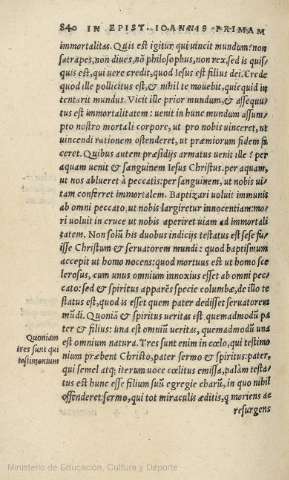 840 IN EPIST. IOANNIS PRIMAM
immortalitas. Quis est igitur qui uincit mundum: non
satrapes, non diues, nō philosophus, non rex. sed is quis-
quis est, qui uere credit, quod Iesus est filius dei. Crede
quod ille pollicitus est, & nihil te mouebit, quicquid in
tentarit mundus. Vicit ille prior mundum, & assequu-
tus est immortalitatem: uenit in hunc mundum assum-
pto nostro mortali corpore, ut pro nobis uinceret, ut
uincendi rationem ostenderet, ut præmiorum fidem fa
ceret. Quibus autem præsidijs armatus uenit ille? per
aquam uenit & sanguinem Iesus Christus. per aquam,
ut nos ablueret à peccatis: per sanguinem, ut nobis ui-
tam conferret immortalem. Baptizari uoluit immunis
ab omni peccato, ut nobis largiretur innocentiam: mo-
ri uoluit in cruce ut nobis aperiret uiam ad immortali
tatem. Non solū his duobus indicijs testatus est sese fu-
isse Christum & seruatorem mundi: quod baptismum
accepit ut homo nocens: quod mortuus est ut homo sce
lerosus, cum unus omnium innoxius esset ab omni pec-
cato: sed & spiritus apparēs specie columbæ, de illo te
status est, quod is esset quem pater dedisset seruatorem
mūdi. Quoniā & spiritus ueritas est quemadmodū pa
ter & filius: una est omniū ueritas, quemadmodū una
est omnium natura. Tres sunt enim in cœlo, qui testimo
nium præbent Christo, pater sermo & spiritus: pater,
qui semel atq; iterum uoce cœlitus emissa, palàm testa-
tus est hunc esse filium suū egregie charū, in quo nihil
offenderet: sermo, qui tot miraculis æditis, q moriens ac
resurgens
Quoniam
tres sunt qui
testimonium
Ministerio de Educación, Cultura y Deporte